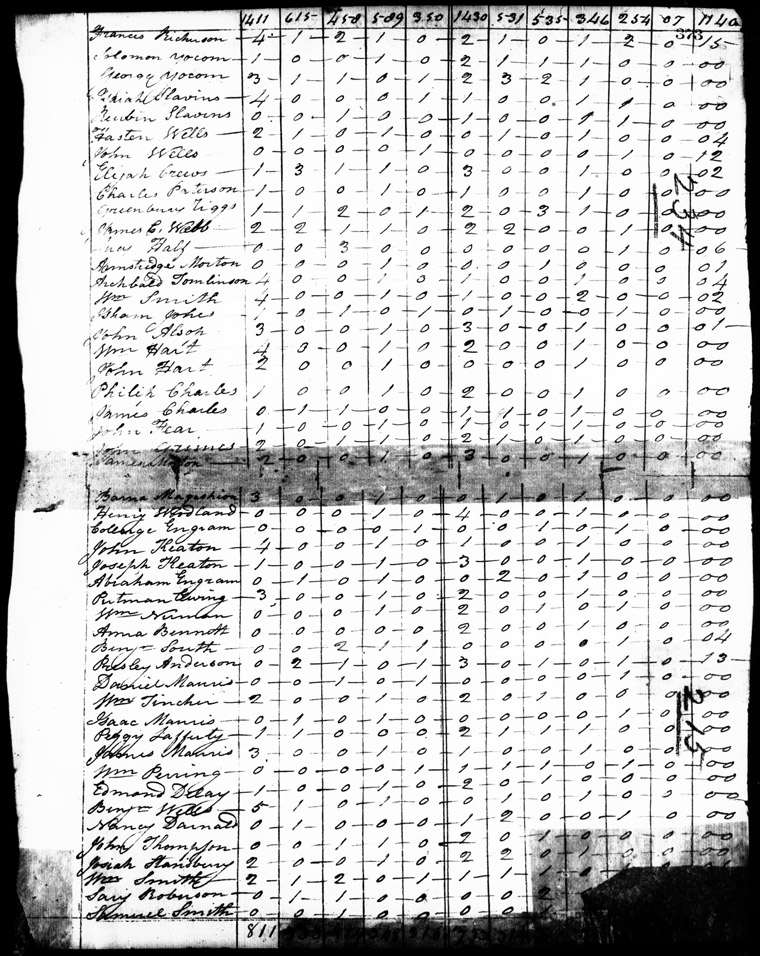 1411 615 458 589 350 1430 531 535 346 254 07 1140
373
Francis Rickerson 4 1 2 1 0 2 1 0 1 2 0 15
Solomon Yocom 1 0 0 1 0 2 1 1 1 0 0 00
George Yocom 3 1 1 0 1 2 3 2 1 0 0 00
Isaiah Slavins 4 0 0 0 1 1 0 0 1 1 0 00
Reubin Slavens 0 0 1 0 0 1 0 0 1 1 0 00
Hasten Wells 2 1 0 1 0 0 1 0 1 0 0 04
John Wells 0 0 0 0 1 0 0 0 0 1 0 12
Elijah Crews 1 3 1 1 0 3 0 0 1 0 0 02
Charles Paterson 1 0 0 1 0 1 0 0 1 0 0 00
Greenbury Tiggs 1 1 2 0 1 2 0 3 1 0 0 00
234
James C. Webb 2 2 1 1 0 2 2 0 0 1 0 00
Hall 0 0 3 0 0 0 0 0 0 1 0 06
Armstridge Morton 0 0 0 1 0 0 0 1 0 0 0 01
Archbald Tomlinson 4 0 0 1 0 1 0 0 1 0 0 04
Wm Smith 4 0 0 1 0 1 0 0 2 0 0 02
Isham 1 0 1 0 1 0 1 0 1 0 0 00
John Alsop 3 0 0 1 0 3 0 0 1 0 0 01
Wm Hart 4 3 0 1 0 2 0 0 1 0 0 00
John Hart 2 0 0 1 0 0 0 0 1 0 0 00
Philip Charles 1 0 0 1 0 2 0 0 1 0 0 00
James Charles 0 1 1 0 0 1 1 0 1 0 0 00
John Fear 1 0 0 1 0 1 0 0 1 0 0 00
John Grimes 2 0 1 1 0 2 1 0 1 0 0 00
James Morton 2 0 0 1 0 3 0 0 1 0 0 00
Barna Magashion 3 0 0 1 0 0 1 0 1 0 0 00
Henry Woodland 0 0 0 1 0 4 0 0 1 0 0 00
College Engram 0 0 0 0 1 0 0 1 0 1 0 00
John Keaton 4 0 0 1 0 1 0 0 1 0 0 00
Joseph Keaton 1 0 0 1 0 3 0 0 1 0 0 00
Abraham Engram 0 1 0 1 0 0 2 0 1 0 0 00
Putman Ewing 3 0 0 1 0 2 0 0 1 0 0 00
Wm 0 0 0 1 0 2 0 1 0 1 0 00
Anna Bennett 0 0 0 0 0 2 0 0 1 0 0 00
Benjn South 0 0 2 1 1 0 0 0 0 1 0 04
Presley Anderson 0 2 1 0 1 3 0 1 0 1 0 13
Daniel Mauris 0 0 1 0 1 0 0 0 0 1 0 00
Wm Tincher 2 0 0 1 0 2 0 1 0 0 0 00
215
Isaac Mauris 0 1 0 1 0 0 0 0 0 1 0 00
Peggy Lafferty 1 1 0 0 0 2 1 1 1 0 0 00
James Mauris 3 0 0 1 0 1 0 0 1 0 0 00
Wm 0 0 0 0 1 1 1 1 0 1 0 00
Edmond Delay 1 0 0 1 0 2 0 1 0 0 0 00
Benjn Wills 5 1 0 1 0 0 1 0 1 0 0 00
Nancy Darnald 0 1 0 0 0 0 1 2 0 0 1 0 00
John Thompson 0 0 1 1 0 2 0 1 0 0 0 00
Josiah Hansbury 2 0 0 1 0 2 2 0 1 0 0
Wm Smith 2 1 2 0 1 1 1
Roberson 0 1 1 0 0 0 0
Samuel Smith 0 0 1 0 0 0 0
811